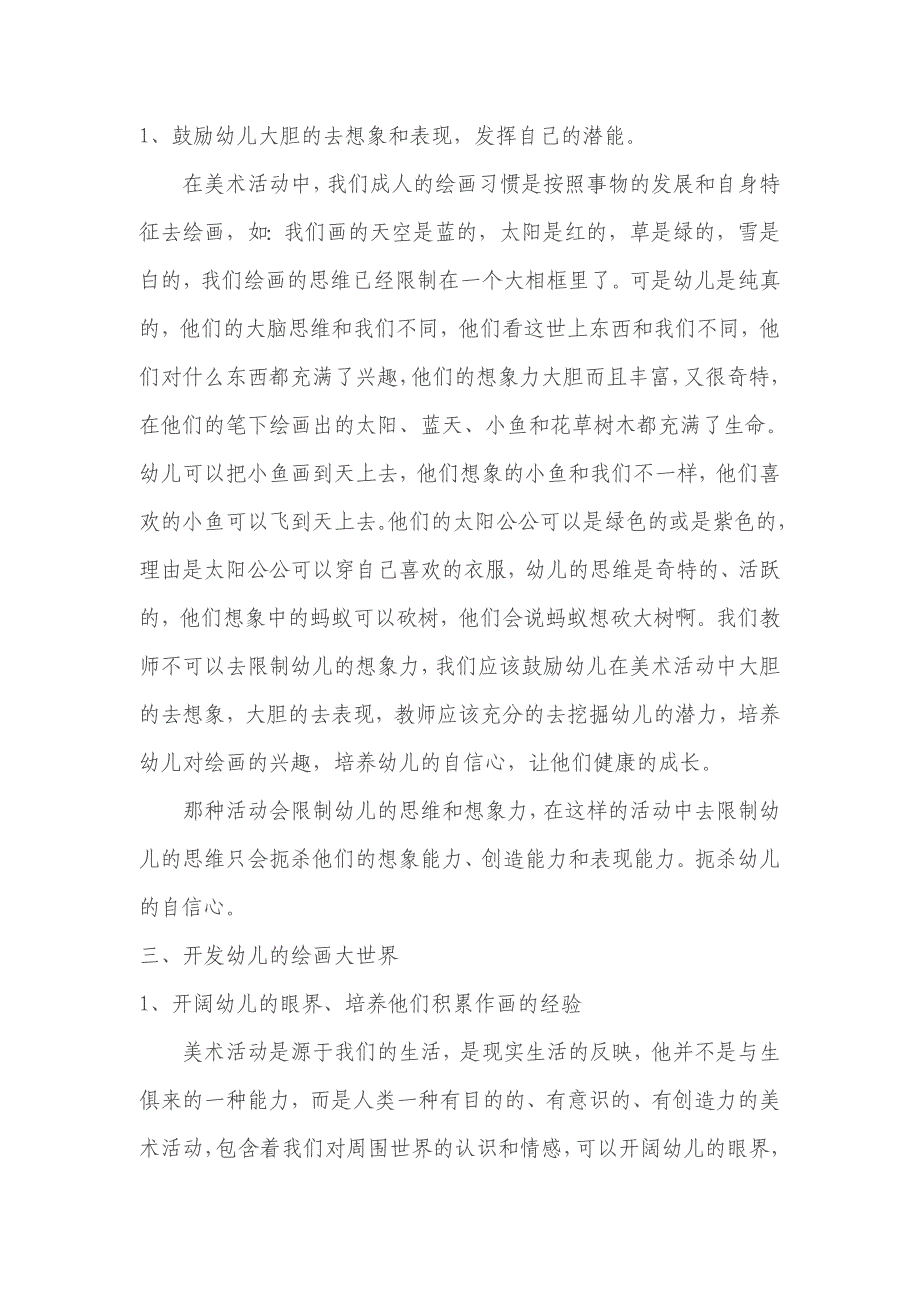 1、鼓励幼儿大胆的去想象和表现，发挥自己的潜能。
在美术活动中，我们成人的绘画习惯是按照事物的发展和自身特
征去绘画，如：我们画的天空是蓝的，太阳是红的，草是绿的，雪是
白的，我们绘画的思维已经限制在一个大相框里了。可是幼儿是纯真
的，他们的大脑思维和我们不同，他们看这世上东西和我们不同，他
们对什么东西都充满了兴趣，他们的想象力大胆而且丰富，又很奇特，
在他们的笔下绘画出的太阳、蓝天、小鱼和花草树木都充满了生命。
幼儿可以把小鱼画到天上去，他们想象的小鱼和我们不一样，他们喜
欢的小鱼可以飞到天上去。他们的太阳公公可以是绿色的或是紫色的，
理由是太阳公公可以穿自己喜欢的衣服，幼儿的思维是奇特的、活跃
的，他们想象中的蚂蚁可以砍树，他们会说蚂蚁想砍大树啊。我们教
师不可以去限制幼儿的想象力，我们应该鼓励幼儿在美术活动中大胆
的去想象，大胆的去表现，教师应该充分的去挖掘幼儿的潜力，培养
幼儿对绘画的兴趣，培养幼儿的自信心，让他们健康的成长。
那种活动会限制幼儿的思维和想象力，在这样的活动中去限制幼
儿的思维只会扼杀他们的想象能力、创造能力和表现能力。扼杀幼儿
的自信心。
三、开发幼儿的绘画大世界
1、开阔幼儿的眼界、培养他们积累作画的经验
美术活动是源于我们的生活，是现实生活的反映，他并不是与生
俱来的一种能力，而是人类一种有目的的、有意识的、有创造力的美
术活动，包含着我们对周围世界的认识和情感，可以开阔幼儿的眼界，